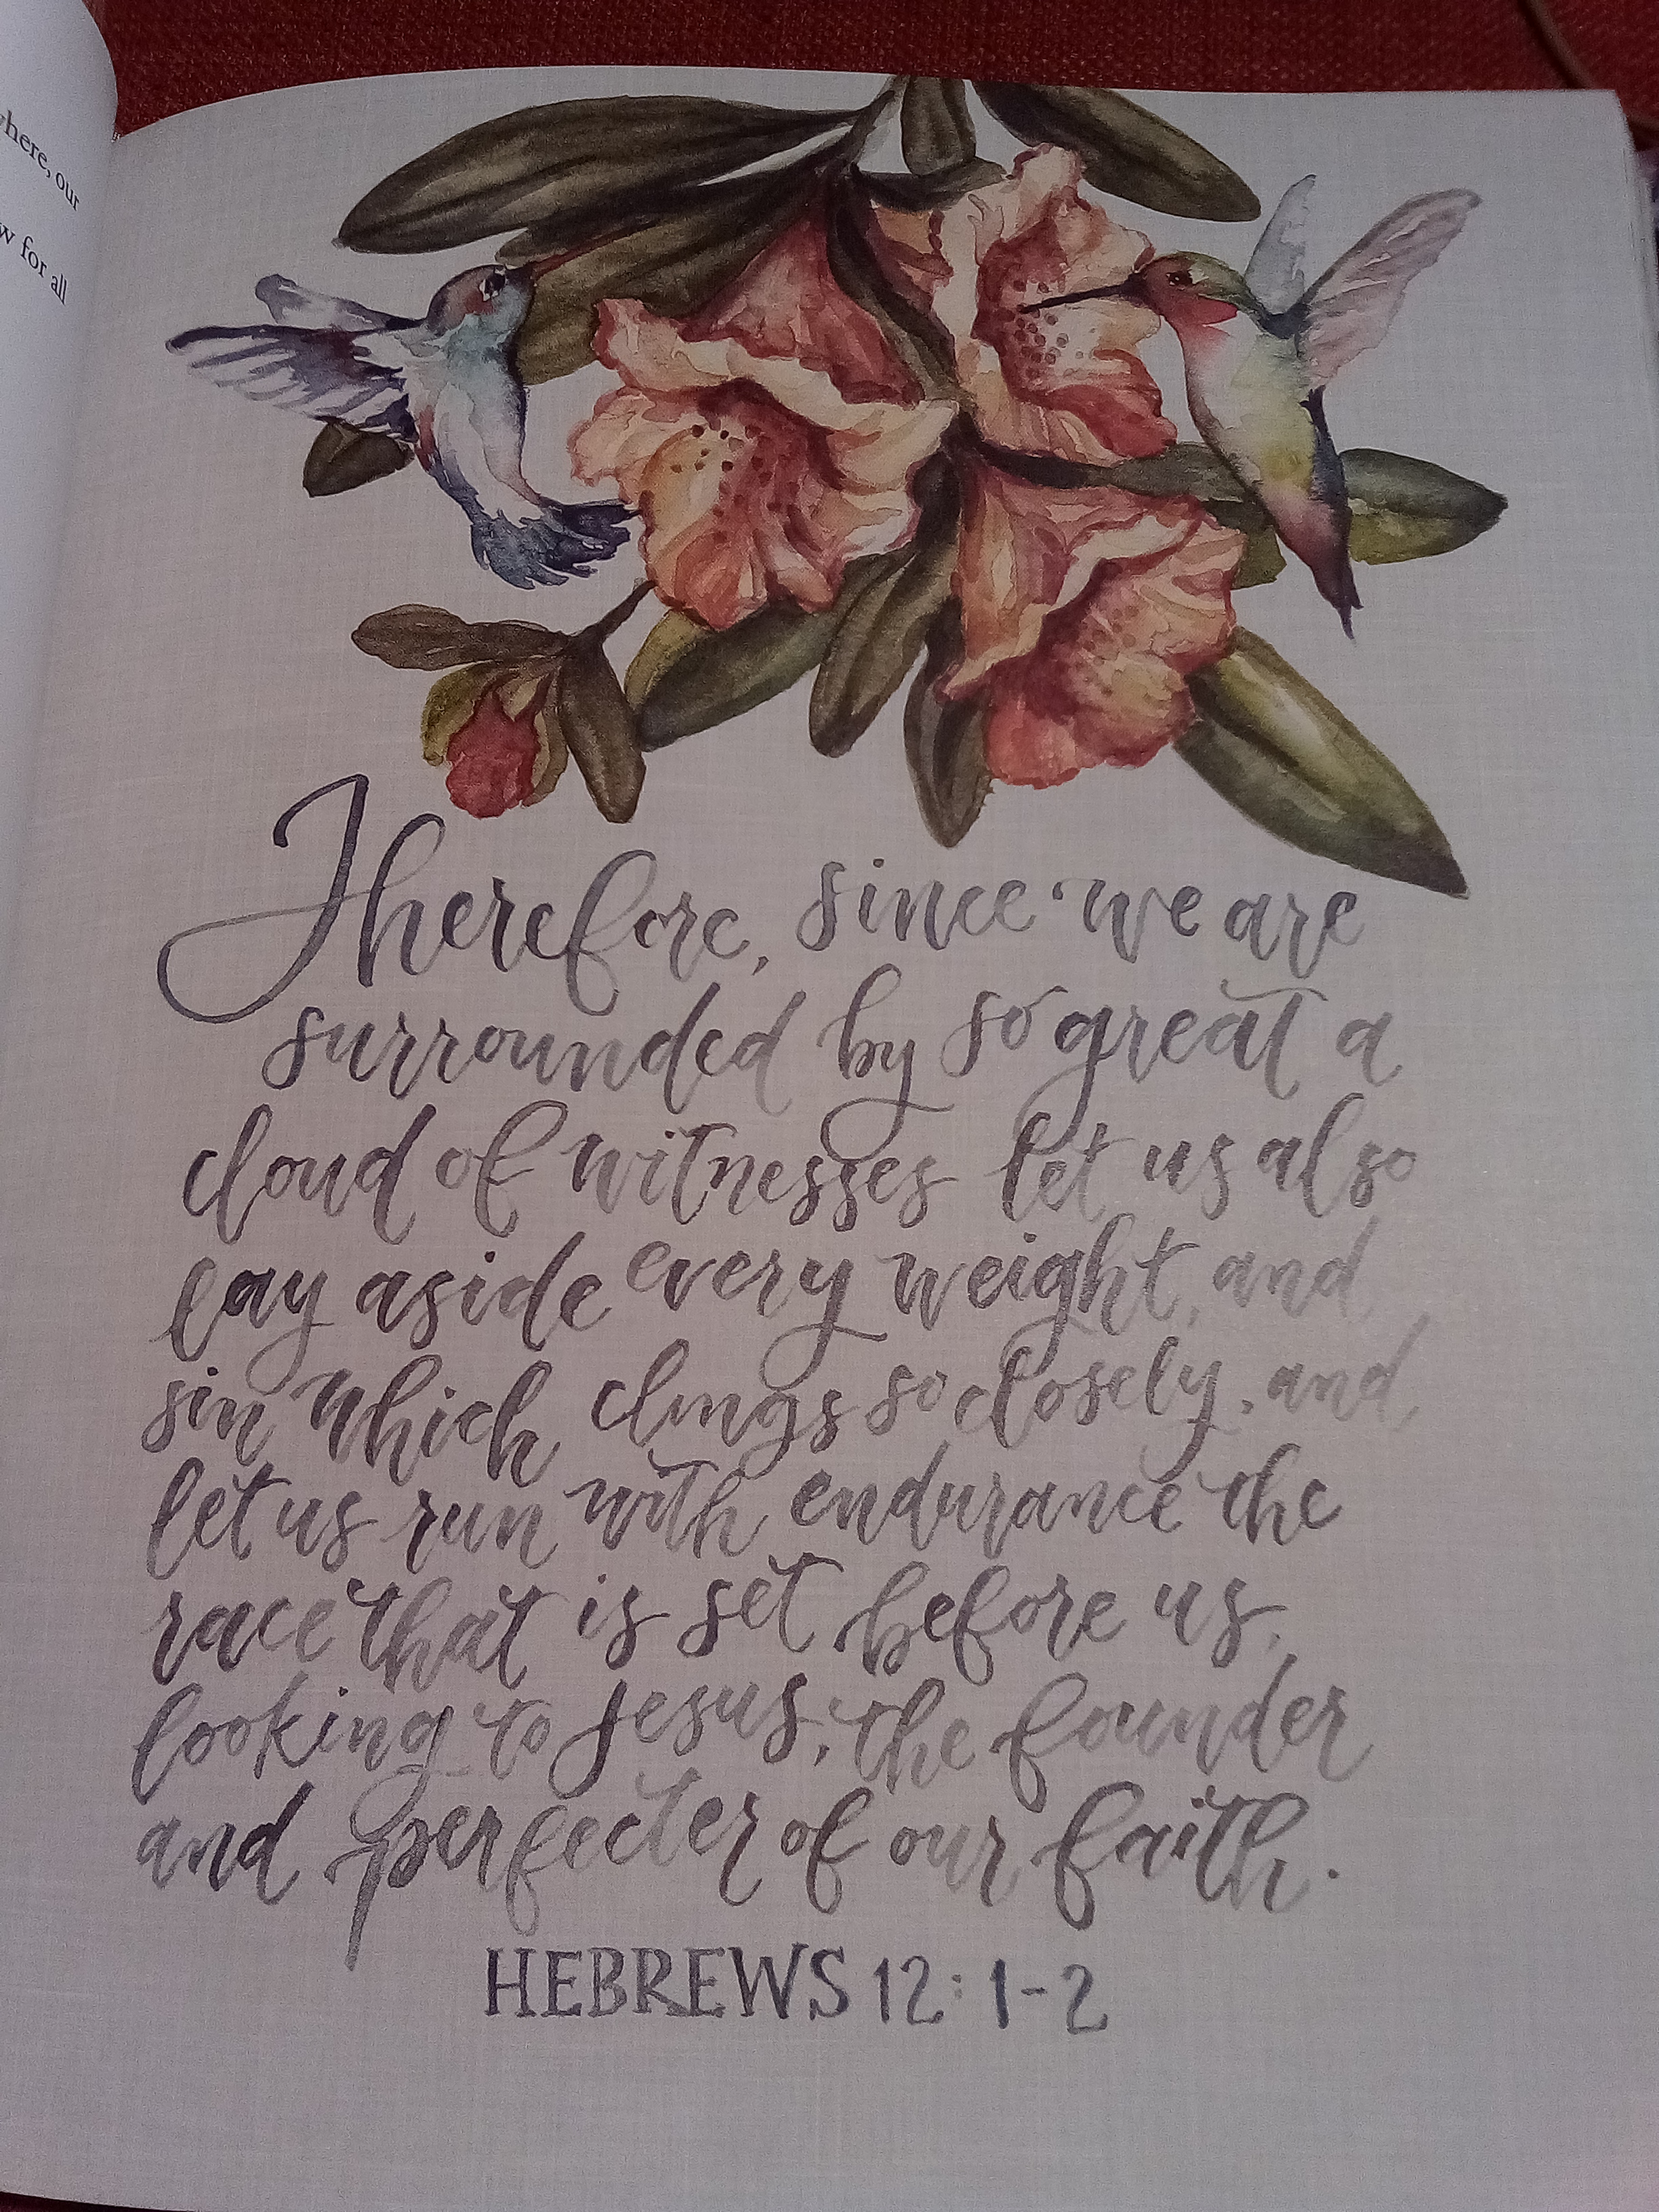 where, our
w for all
Therefore, since we are
surrounded by so great a
cloud of witnesses let us also
lay aside every weight, and
sin which clings so closely, and,
let us run with endurance the
race that is set before us,
looking to Jesus, the founder
and perfecter of our faith.
HEBREWS 12:1-2